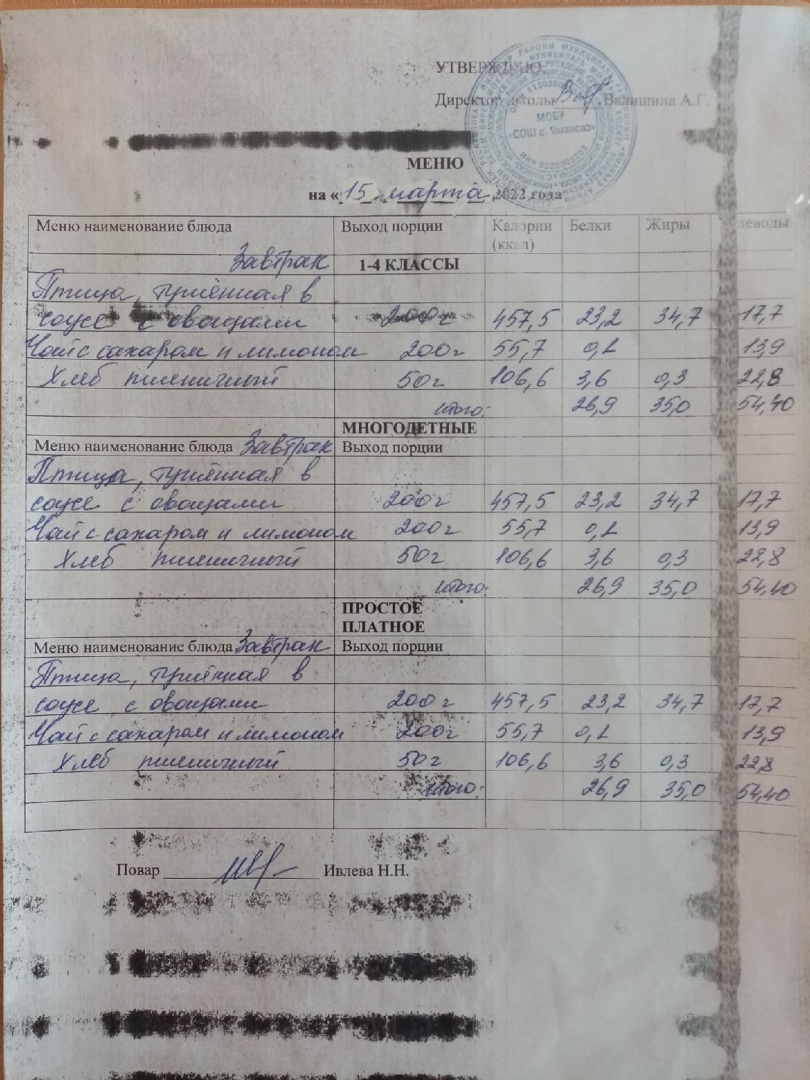 УТВЕРЖДЕНО:
Директор школы Валишина А.Г.
МОБУ
СОШ с. Ямансаз
МЕНЮ
на « 15 марта 2022 года
Меню наименование блюда Выход порции Калории (ккал) Белки Жиры леводы
Завтрак 1-4 КЛАССЫ
Птица, тушённая в
соусе с овощами 200г 457,5 23,2 34,7 17,7
Чай с сахаром и лимоном 200г 55,7 0,1 13,9
Хлеб пшеничный 50г 106,6 3,6 0,3 22,8
Итого: 26,9 35,0 54,40
МНОГОДЕТНЫЕ
Меню наименование блюда Завтрак Выход порции
Птица, тушённая в
соусе с овощами 200г 457,5 23,2 34,7 17,7
Чай с сахаром и лимоном 200г 55,7 0,1 13,9
Хлеб пшеничный 50г 106,6 3,6 0,3 22,8
Итого: 26,9 35,0 54,40
ПРОСТОЕ
ПЛАТНОЕ
Меню наименование блюда Завтрак Выход порции
Птица, тушённая в
соусе с овощами 200г 457,5 23,2 34,7 17,7
Чай с сахаром и лимоном 200г 55,7 0,1 13,9
Хлеб пшеничный 50г 106,6 3,6 0,3 22,8
Итого: 26,9 35,0 54,40
Повар Ивлева Н.Н.